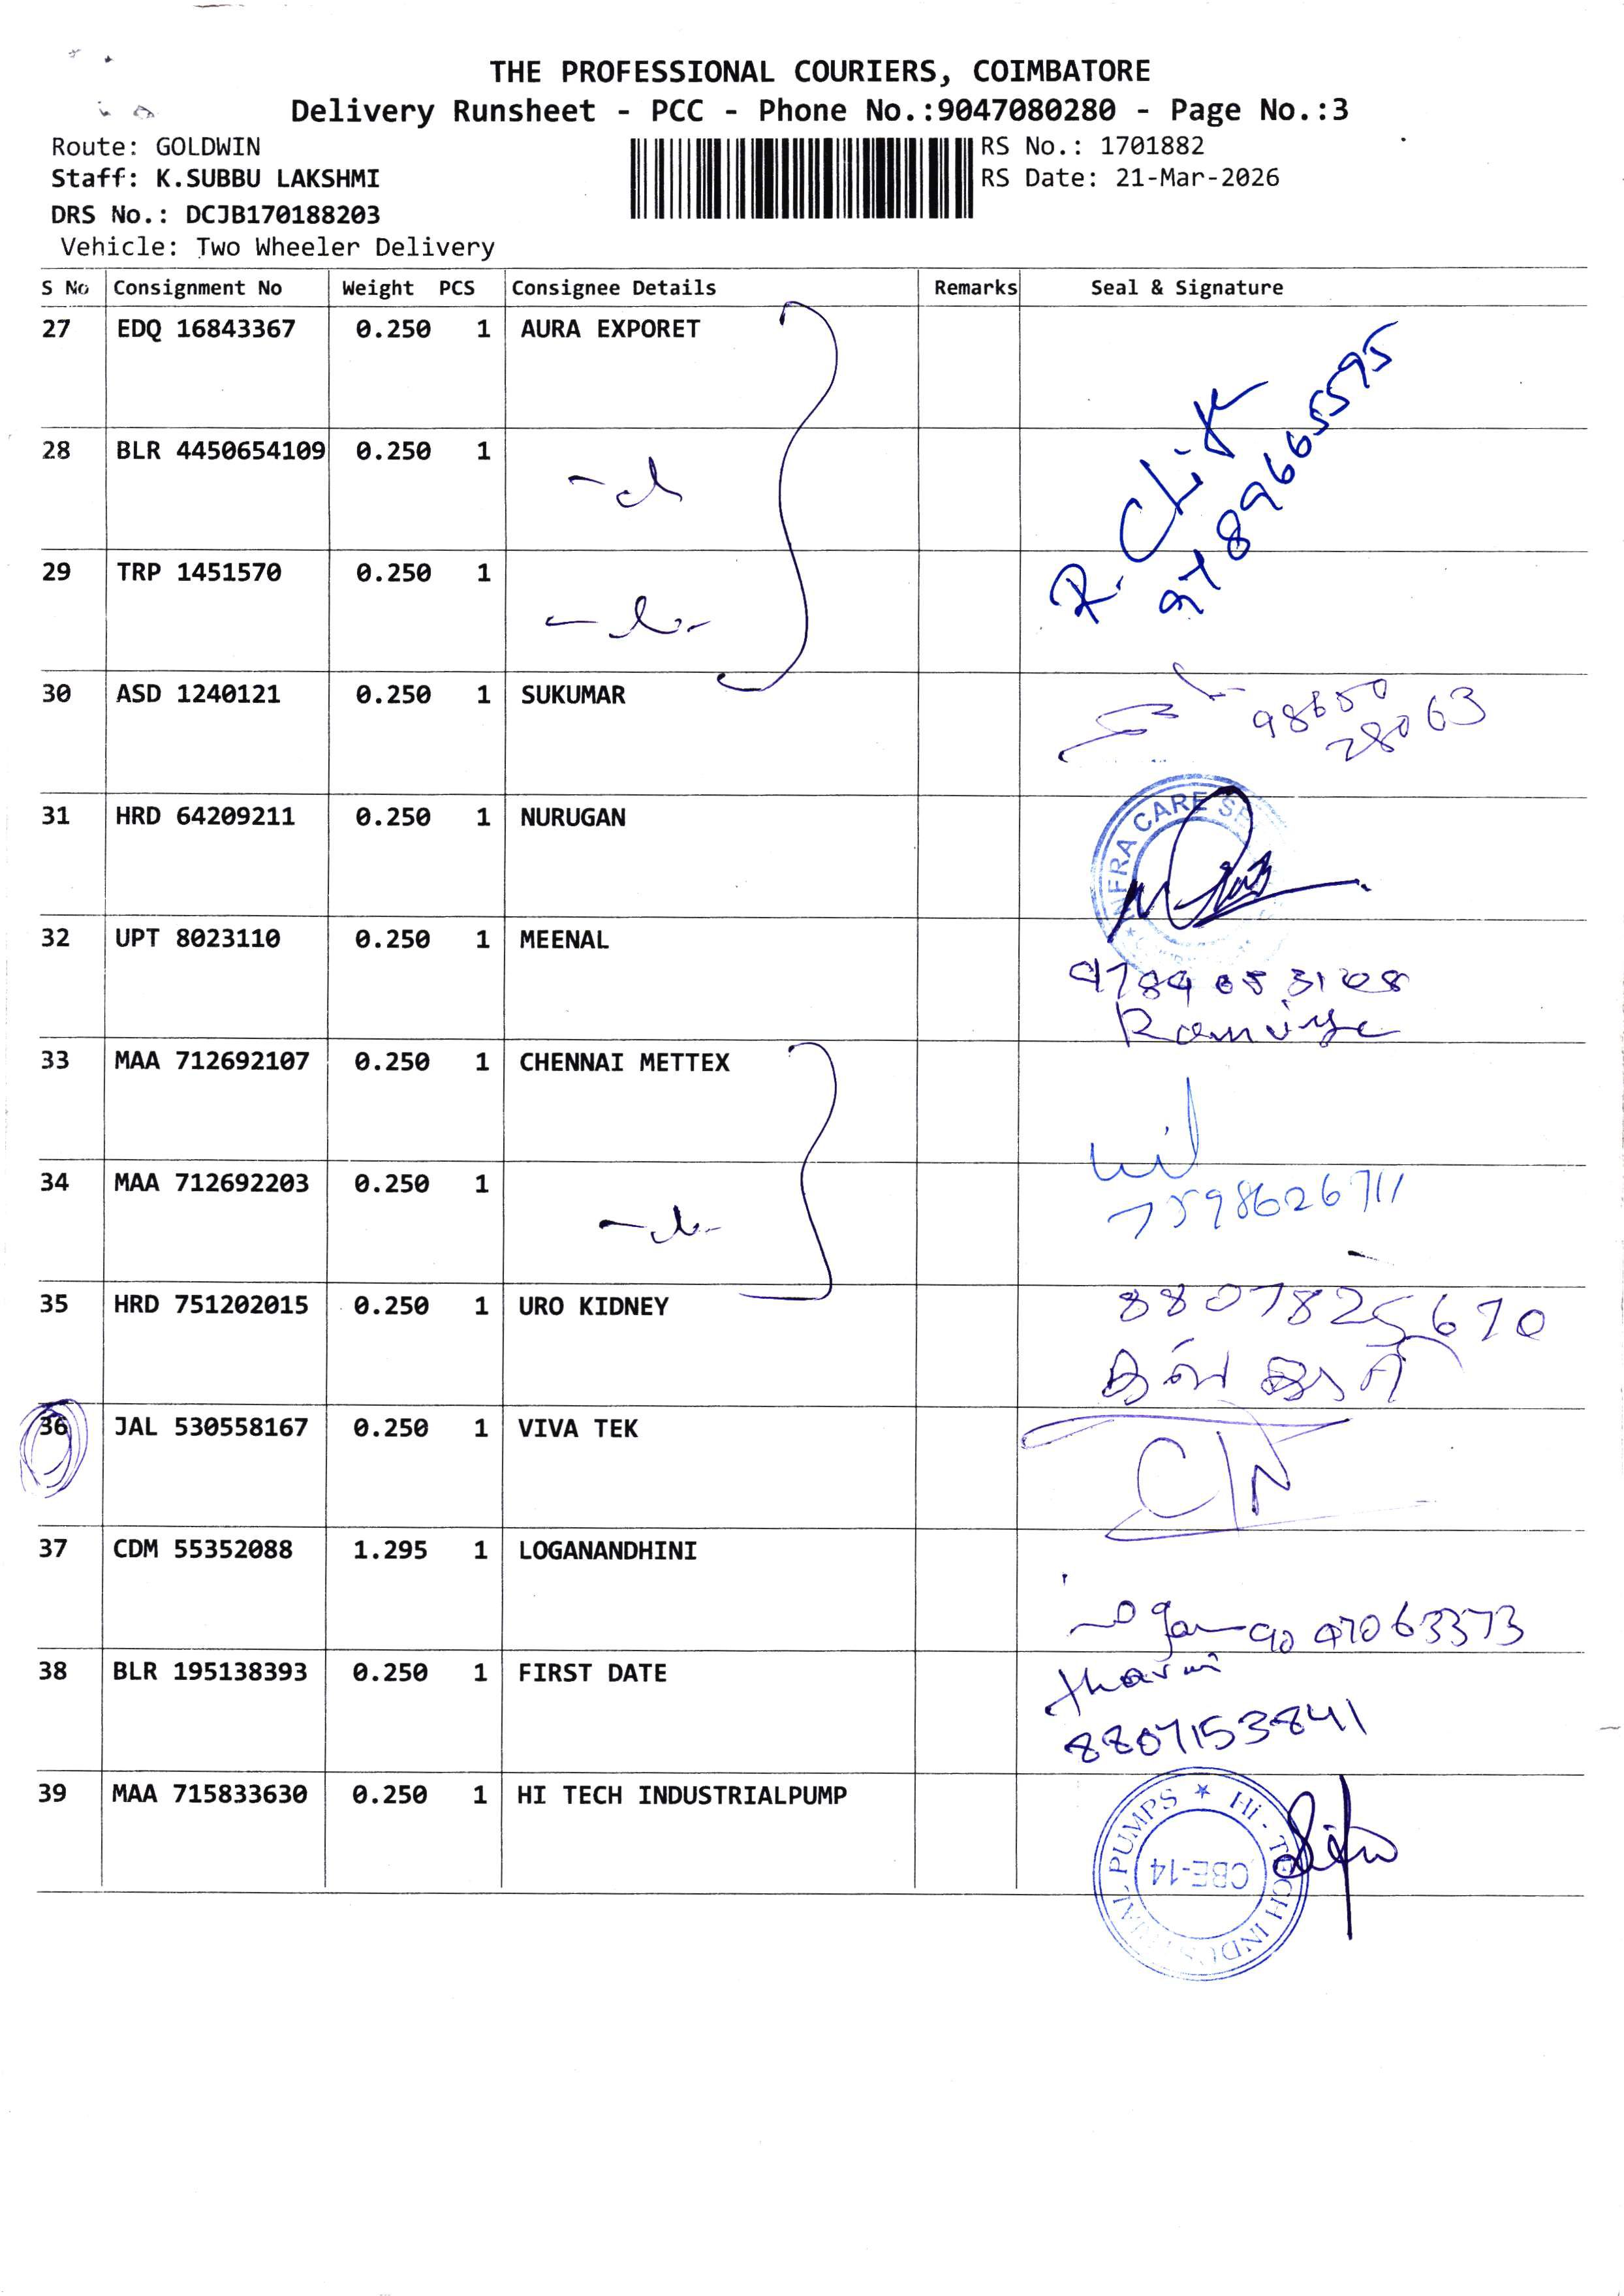 THE PROFESSIONAL COURIERS, COIMBATORE
Delivery Runsheet - PCC - Phone No.:9047080280 - Page No.:3
Route: GOLDWIN
RS No.: 1701882
Staff: K.SUBBU LAKSHMI
RS Date: 21-Mar-2026
DRS No.: DCJB170188203
Vehicle: Two Wheeler Delivery
S No Consignment No Weight PCS Consignee Details Remarks Seal & Signature
27 EDQ 16843367 0.250 1 AURA EXPORET
28 BLR 4450654109 0.250 1
29 TRP 1451570 0.250 1
30 ASD 1240121 0.250 1 SUKUMAR
98650
28063
31 HRD 64209211 0.250 1 NURUGAN
INFRA CARE
32 UPT 8023110 0.250 1 MEENAL
33 MAA 712692107 0.250 1 CHENNAI METTEX
34 MAA 712692203 0.250 1
7598626711
35 HRD 751202015 0.250 1 URO KIDNEY
8807825670
36 JAL 530558167 0.250 1 VIVA TEK
37 CDM 55352088 1.295 1 LOGANANDHINI
38 BLR 195138393 0.250 1 FIRST DATE
8807153841
39 MAA 715833630 0.250 1 HI TECH INDUSTRIALPUMP
Hi-TECH INDUSTRIAL PUMPS
CBE-14